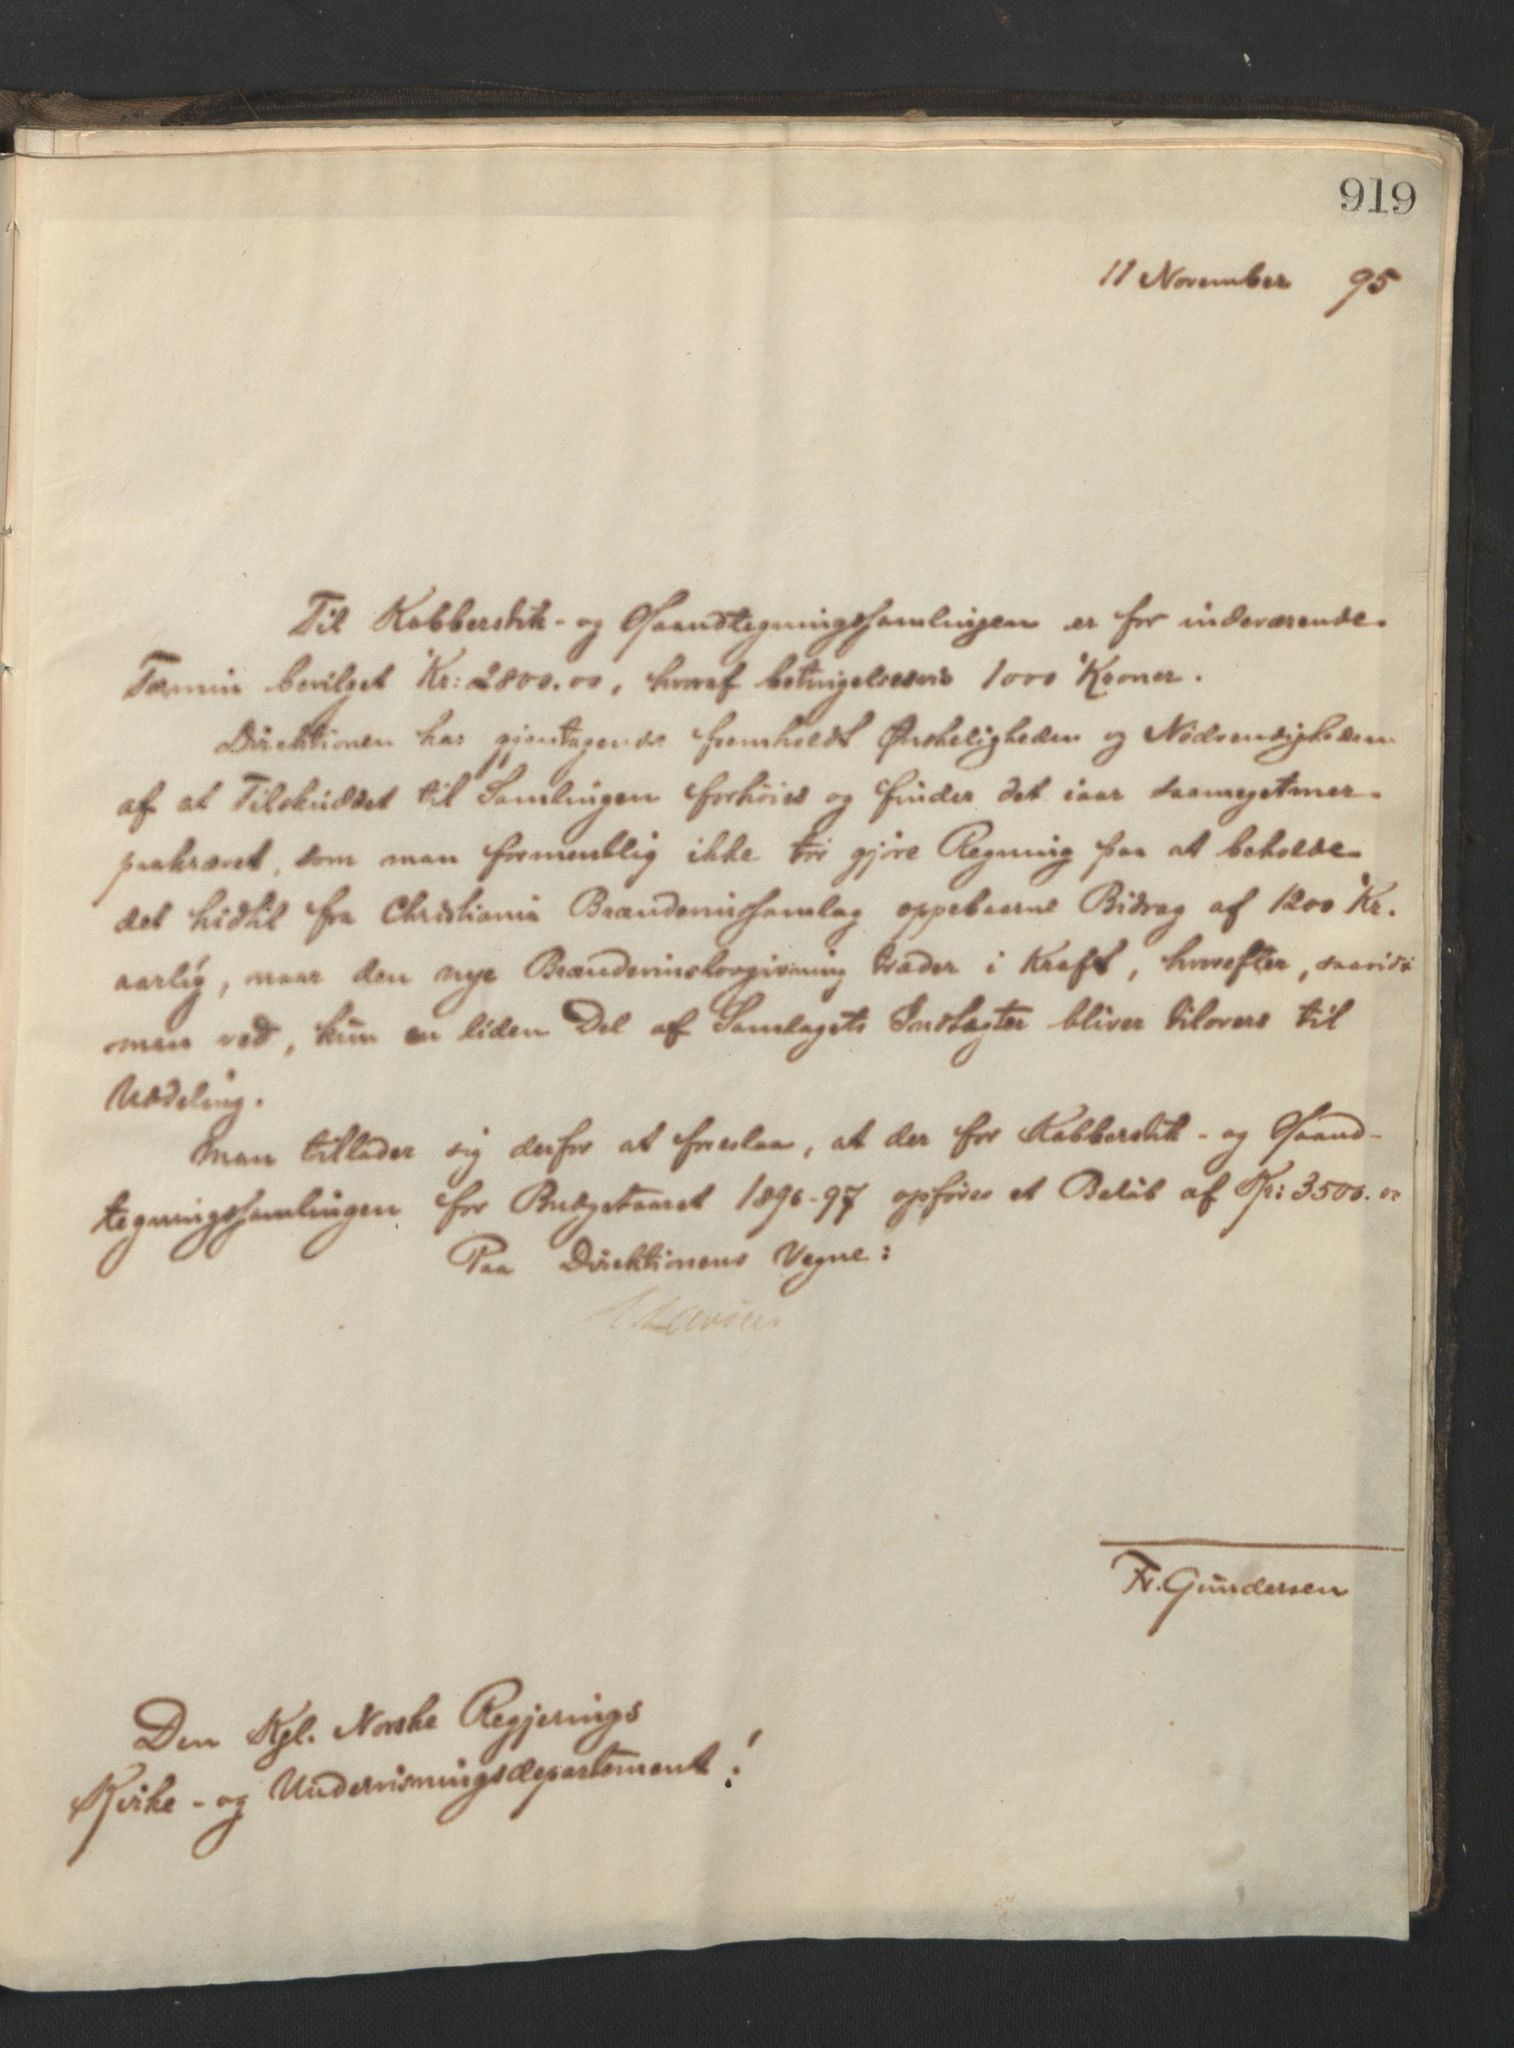 919
11 November 95
Til Kobberstik- og Haandtegningssamlingen er for indeværende
Termin bevilget Kr: 2800.00, hvoraf betingelsesvis 1000 Kroner.
Direktionen har gjentagende fremholdt Ønskeligheden og Nødvendigheden
af at Tilskuddet til Samlingen forhöies og finder det iaar saameget mer
paakrævet, som man formentlig ikke tör gjöre Regning paa at beholde
det hidtil fra Christiania Brændevinssamlag oppebaarne Bidrag af 1200 Kr.
aarlig, naar den nye Brændevinslovgivning træder i Kraft, hvorefter, saavidt
man ved, kun en liden Del af Samlagets Indtægter bliver tilovers til
Uddeling.
Man tillader sig derfor at foreslaa, at der for Kobberstik- og Haand-
tegningssamlingen for Budgetaaret 1896-97 opföres et Belöb af Kr: 3500.00
Paa Direktionens Vegne:
Fr. Gundersen
Den Kgl. Norske Regjerings
Kirke- og Undervisningsdepartement!